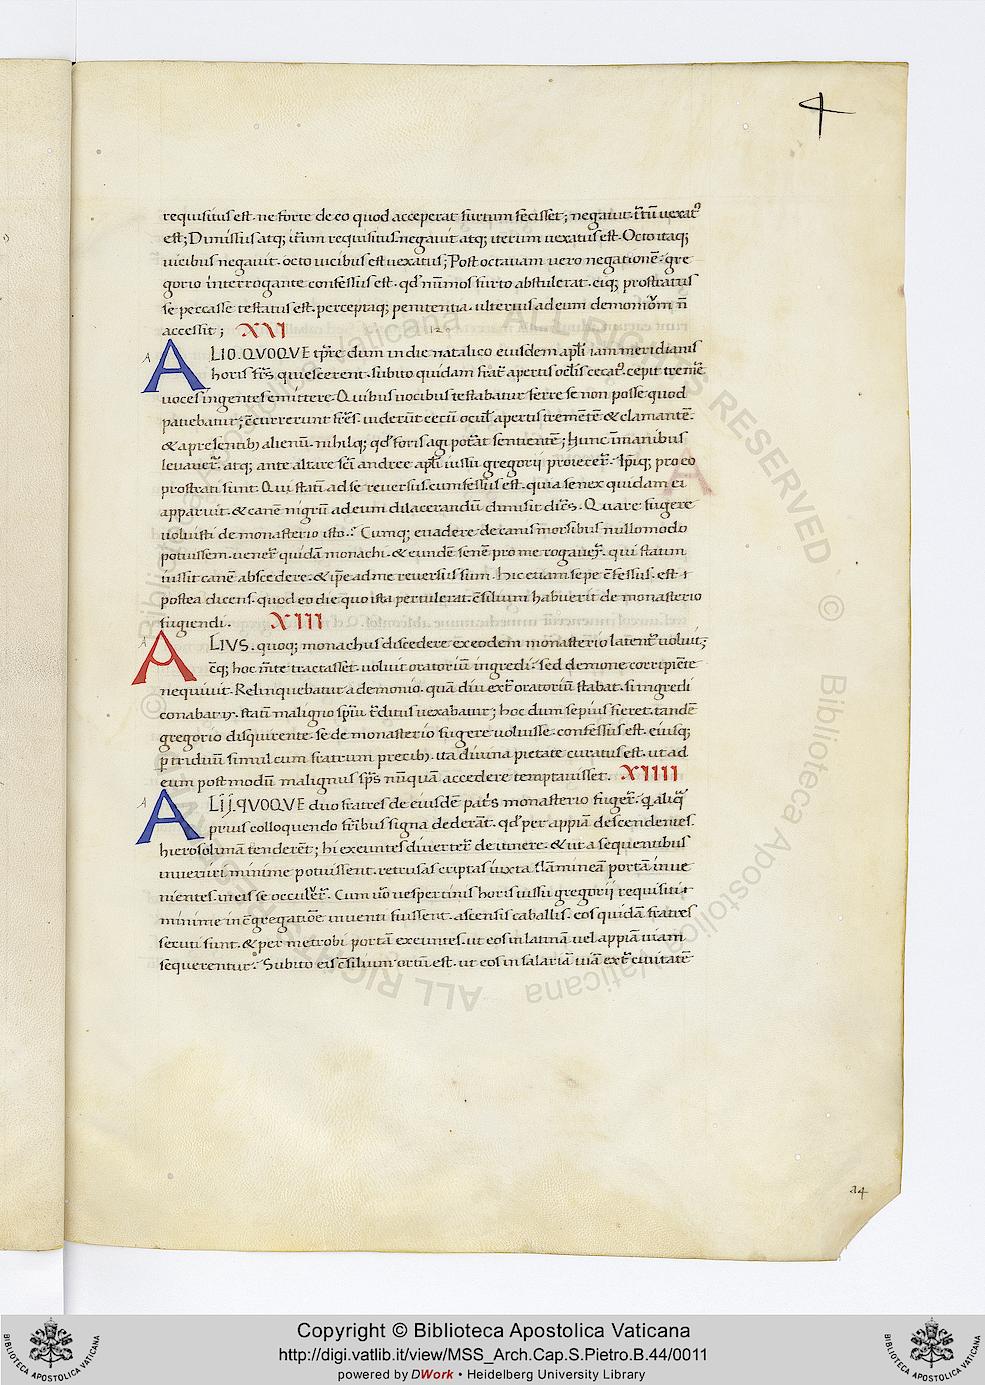 4
requisitus est. ne forte de eo quod acceperat furtum fecisset; negauit. iterū uexatꝰ
est; Dimissus atq; iterum requisitus. negauit atq; iterum uexatus est. Octo itaq;
uicibus negauit. octo uicibus est uexatus; Post octauam uero negationē. gre
gorio interrogante confessus est. qd̄ nūmos furto abstulerat. eiq; prostratus
se peccasse testatus est. perceptaq; penitentia. ulterius ad eum demonioꝝ n̄
accessit; XVI
A
ALIO. QVOQVE tp̄re dum in die natalico eiusdem apl̄i iam meridianis
horis fr̄s quiescerent. subito quidam frat̄ apertis ocl̄is cecatꝰ. cepit tremē
uoces ingentes emittere. Quibus uocibus testabatur ferre se non posse quod
patiebatur; c̄currerunt fr̄es. uiderūt cecū ocul̄ apertis trementē & clamantē.
& a presentib; alienū. nihilq; qd̄ foris agi pot̄at sentientē; Hunc in manibus
leuauer̄. atq; ante altare sc̄i andree apl̄i iussu gregorii proiecer̄. Ip̄iq; pro eo
prostrati sunt. Qui statī ad se reuersus. cumfessus est. quia senex quidam ei
apparuit. & canē nigrū ad eum dilacerandū dimisit dic̄s. Quare fugere
uoluisti de monasterio isto. Cumq; euadere de canis morsibus nullo modo
potuissem. uener̄ quidā monachi. & eundē senē pro me rogauer̄. qui statim
iussit canē abscedere. & ip̄e ad me reuersus sum. Hic etiam sepe c̄fessus. est
postea dicens. quod eo die quo ista pertulerat. c̄silium habuerit de monasterio
fugiendi. XIII
A
ALIVS. quoq; monachus discedere ex eodem monasterio latent̄ uoluit;
c̄q; hoc m̄te tractasset. uoluit oratoriū ingredi. sed demone corripiēte
nequiuit. Relinquebatur a demonio. quādiu ext̄ oratoriū stabat. si ingredi
conabatꝰ. statī maligno sp̄iu t̄ditus uexabatur; hoc dum sepius fieret. tandē
gregorio disquirente. se de monasterio fugere uoluisse. confessus est. eiusq;
ꝑ triduū simul cum fratrum precib; ita diuina pietate curatus est. ut ad
eum postmodū malignus sp̄s nūquā accedere temptauisset. XIIII
A
ALIJ. QVOQVE duo fratres de eiusdē pat̄s monasterio fuger̄. q alīq
prius colloquendo fr̄ibus signa dederāt. qd̄ per appiā descendentes.
hierosolimā tenderēt; hi exeuntes diuerter̄ de itinere. & ut a sequentibus
inueniri minime potuissent. retrusas criptas iuxta flāmineā portā inue
nientes. in eis se occuler̄. Cum uō uespertinis horis iussu gregorii requisiti
minime in c̄gregatiōe inuenti fuissent. ascensis caballis. eos quidā fratres
secuti sunt. & per metrobi portā exeuntes. ut eos in latinā uel appiā uiam
sequerentur. Subito eis c̄silium ortū est. ut eos in salariā uiā ext̄ ciuitatē
a4
© Biblioteca Apostolica Vaticana ALL RIGHTS RESERVED
© Biblioteca Apostolica Vaticana ALL RIGHTS RESERVED
BIBLIOTECA APOSTOLICA VATICANA
Copyright © Biblioteca Apostolica Vaticana
http://digi.vatlib.it/view/MSS_Arch.Cap.S.Pietro.B.44/0011
powered by DWork • Heidelberg University Library
BIBLIOTECA APOSTOLICA VATICANA